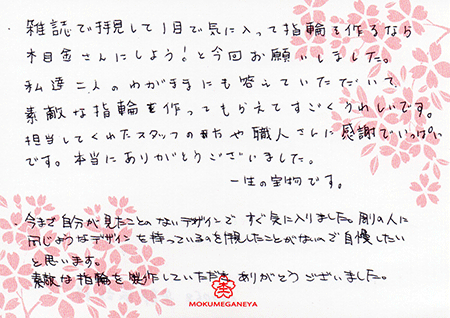 ・雑誌で拝見して1目で気に入って指輪を作るなら
木目金さんにしよう!と今回お願いしました。
私達二人のわがままにも答えていただいて、
素敵な指輪を作ってもらえてすごくうれしいです。
担当してくれたスタッフの方や職人さんに感謝でいっぱい
です。本当にありがとうございました。
一生の宝物です。
・今まで自分が見たことのないデザインですぐ気に入りました。別の人に
同じようなデザインを持っているのを拝見したことがないので自慢したい
と思います。
素敵な指輪を製作していただき ありがとうございました。
MOKUMEGANEYA